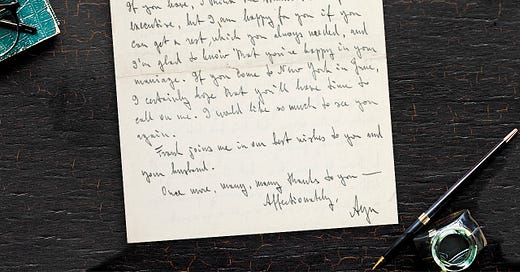 If you have, I think the
executive, but I am happy for you if you
can get a rest which you always needed, and
I'm glad to know that you're happy in your
marriage. If you come to New York in June,
I certainly hope that you'll have time to
call on me. I would like so much to see you
again.
Frank joins me in our best wishes to you and
your husband.
Once more, many, many thanks to you —
Affectionately,
Ayn